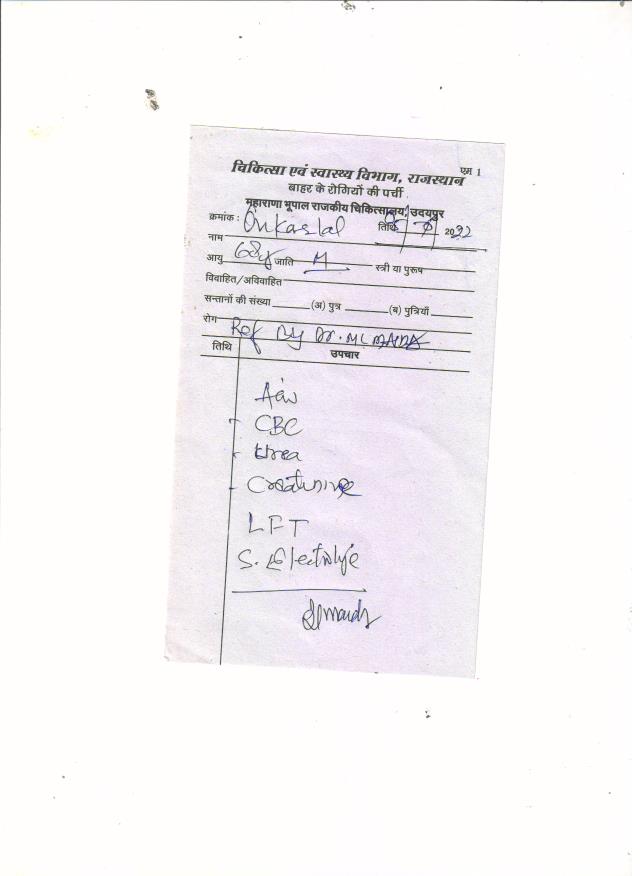 एम 1
चिकित्सा एवं स्वास्थ्य विभाग, राजस्थान
बाहर के रोगियों की पर्ची
महाराणा भूपाल राजकीय चिकित्सालय, उदयपुर
क्रमांक : Onkarlal तिथि 2022
नाम
आयु 68y जाति M स्त्री या पुरूष
विवाहित/अविवाहित
सन्तानों की संख्या (अ) पुत्र (ब) पुत्रियाँ
रोग Ref By Dr. ML
तिथि उपचार
Adv
CBC
Urea
Creatinine
LFT
S. Electrolyte